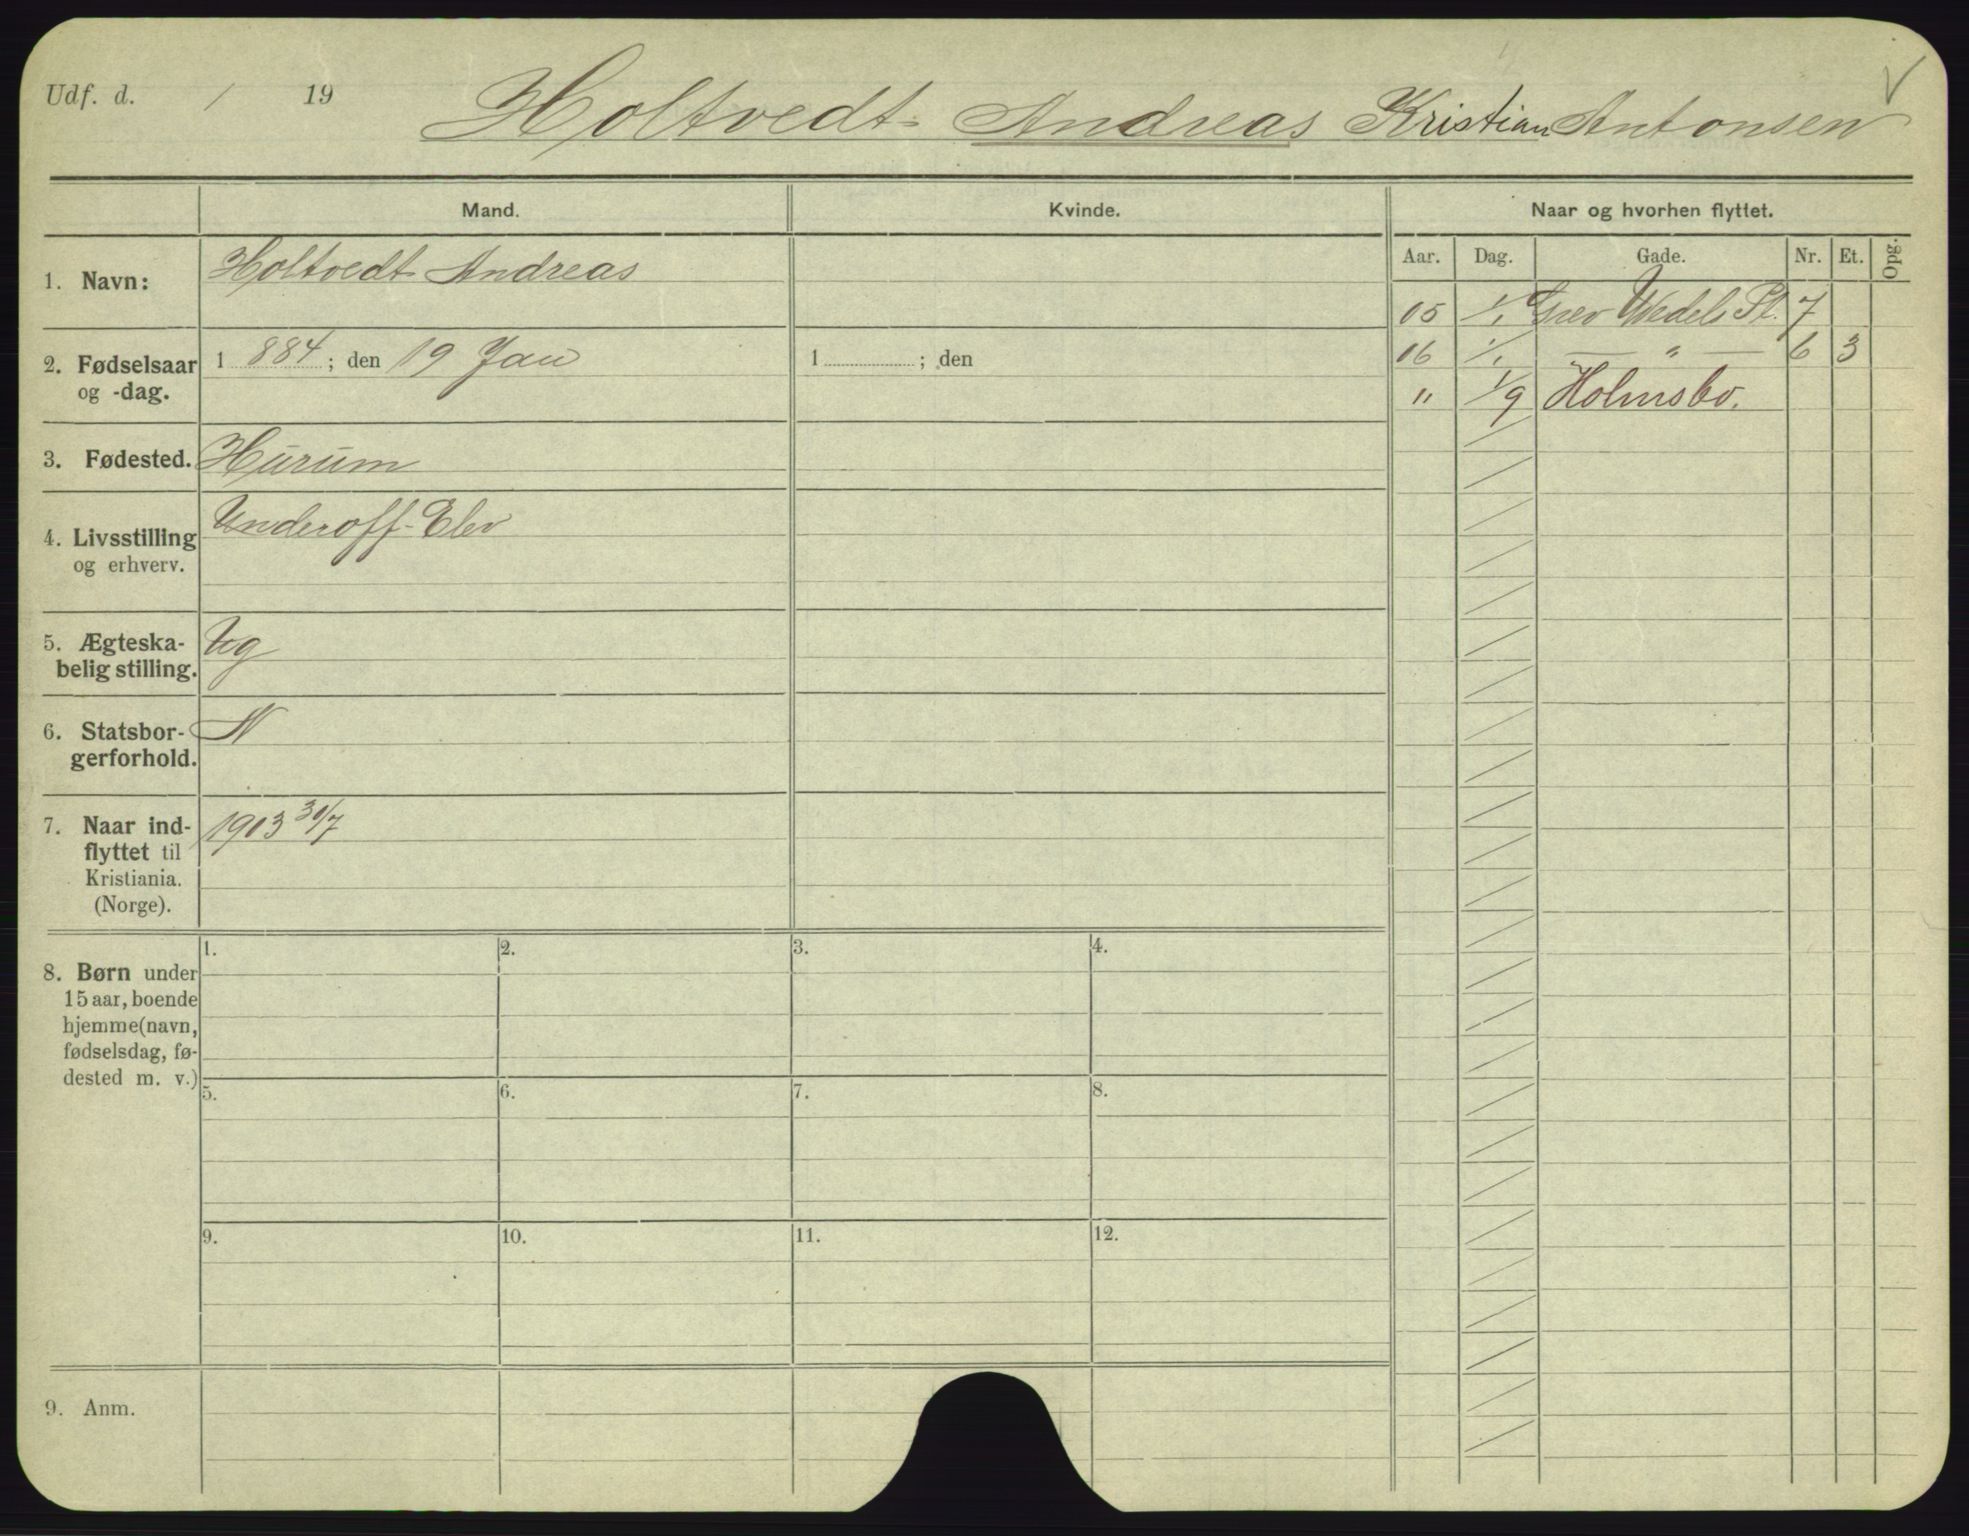 Udf. d. / 19
Holtvedt Andreas Kristian Antonsen
Mand. Kvinde. Naar og hvorhen flyttet.
Aar. Dag. Gade. Nr. Et. Opg.
1. Navn: Holtvedt Andreas
05 1/1 Grev Wedels Pl. 7
06 1/1 — " — 6 3
" 1/9 Holmsbo.
2. Fødselsaar 1 884 ; den 19 Jan 1 ; den
og -dag.
3. Fødested. Hurum
4. Livsstilling Underoff-Elev
og erhverv.
5. Ægteska- Ug
belig stilling.
6. Statsbor- N
gerforhold.
7. Naar ind- 1903 30/7
flyttet til
Kristiania.
(Norge).
8. Børn under
15 aar, boende
hjemme (navn,
fødselsdag, fø-
dested m. v.)
1. 2. 3. 4.
5. 6. 7. 8.
9. 10. 11. 12.
9. Anm.